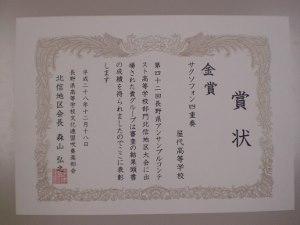 賞状
金賞
サクソフォン四重奏
屋代高等学校
第四十二回長野県アンサンブルコンテ
スト高等学校部門北信地区大会に出
場された貴グループは審査の結果頭書
の成績を得られましたのでここに表彰
します
平成二十八年十二月十八日
長野県高等学校文化連盟吹奏楽部会
北信地区会長 森山弘之